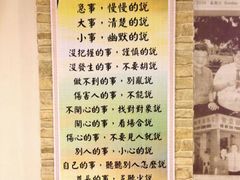 急事，慢慢的說
大事，清楚的說
小事，幽默的說
沒把握的事，謹慎的說
沒發生的事，不要胡說
做不到的事，別亂說
傷害人的事，不能說
不開心的事，找對對象說
開心的事，看場合說
傷心的事，不要見人就說
別人的事，小心的說
自己的事，聽聽別人怎麼說